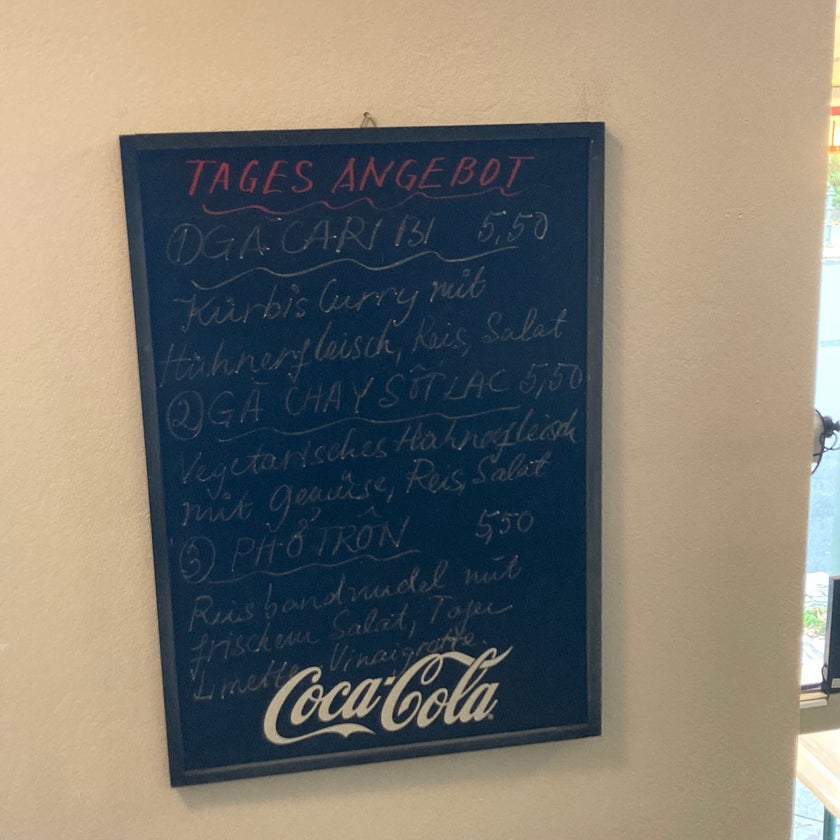 TAGES ANGEBOT
① GÀ CARI BI 5,50
Kürbis Curry mit
Hühnerfleisch, Reis, Salat
② GÀ CHAY SỐT LAC 5,50
Vegetarisches Hühnerfleisch
mit Gemüse, Reis, Salat
③ PHỞ TRÔN 5,50
Reisbandnudel mit
frischem Salat,
Limette, Vinaigrette.
Coca-Cola